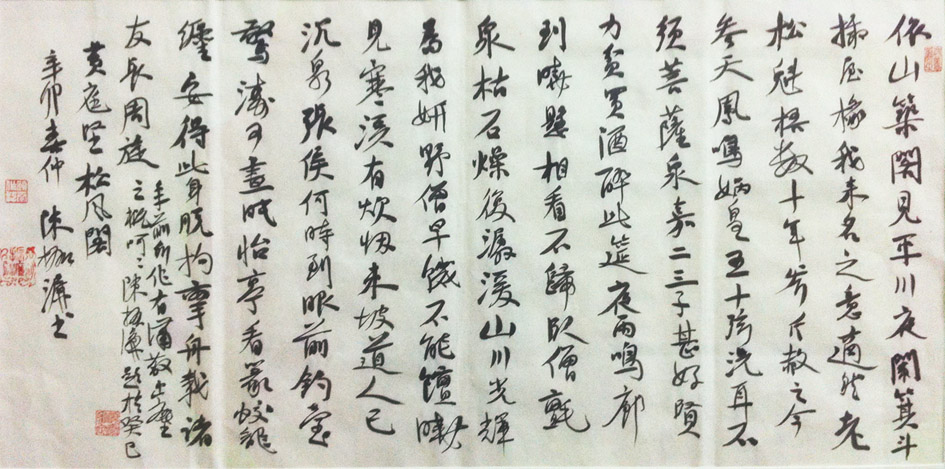 依山築閣見平川夜闌箕斗
插屋椽我來名之意適然老
松魁梧數十年斧斤赦之今
參天風鳴媧皇五十弦洗耳不
須菩薩泉嘉二三子甚好賢
力貧買酒醉此筵夜雨鳴廊
到曉懸相看不歸臥僧氈
泉枯石燥復潺湲山川光輝
為我妍野僧早饑不能饘曉
見寒溪有炊烟東坡道人已
沉泉張侯何時到眼前釣臺
驚濤可晝眠怡亭看篆蛟龍
纏安得此身脫拘攣舟載諸
友長周旋
年前所作有瀟散出塵
之概呵呵陳振濂題於癸巳
黃庭堅松風閣
辛卯春仲 陳振濂書